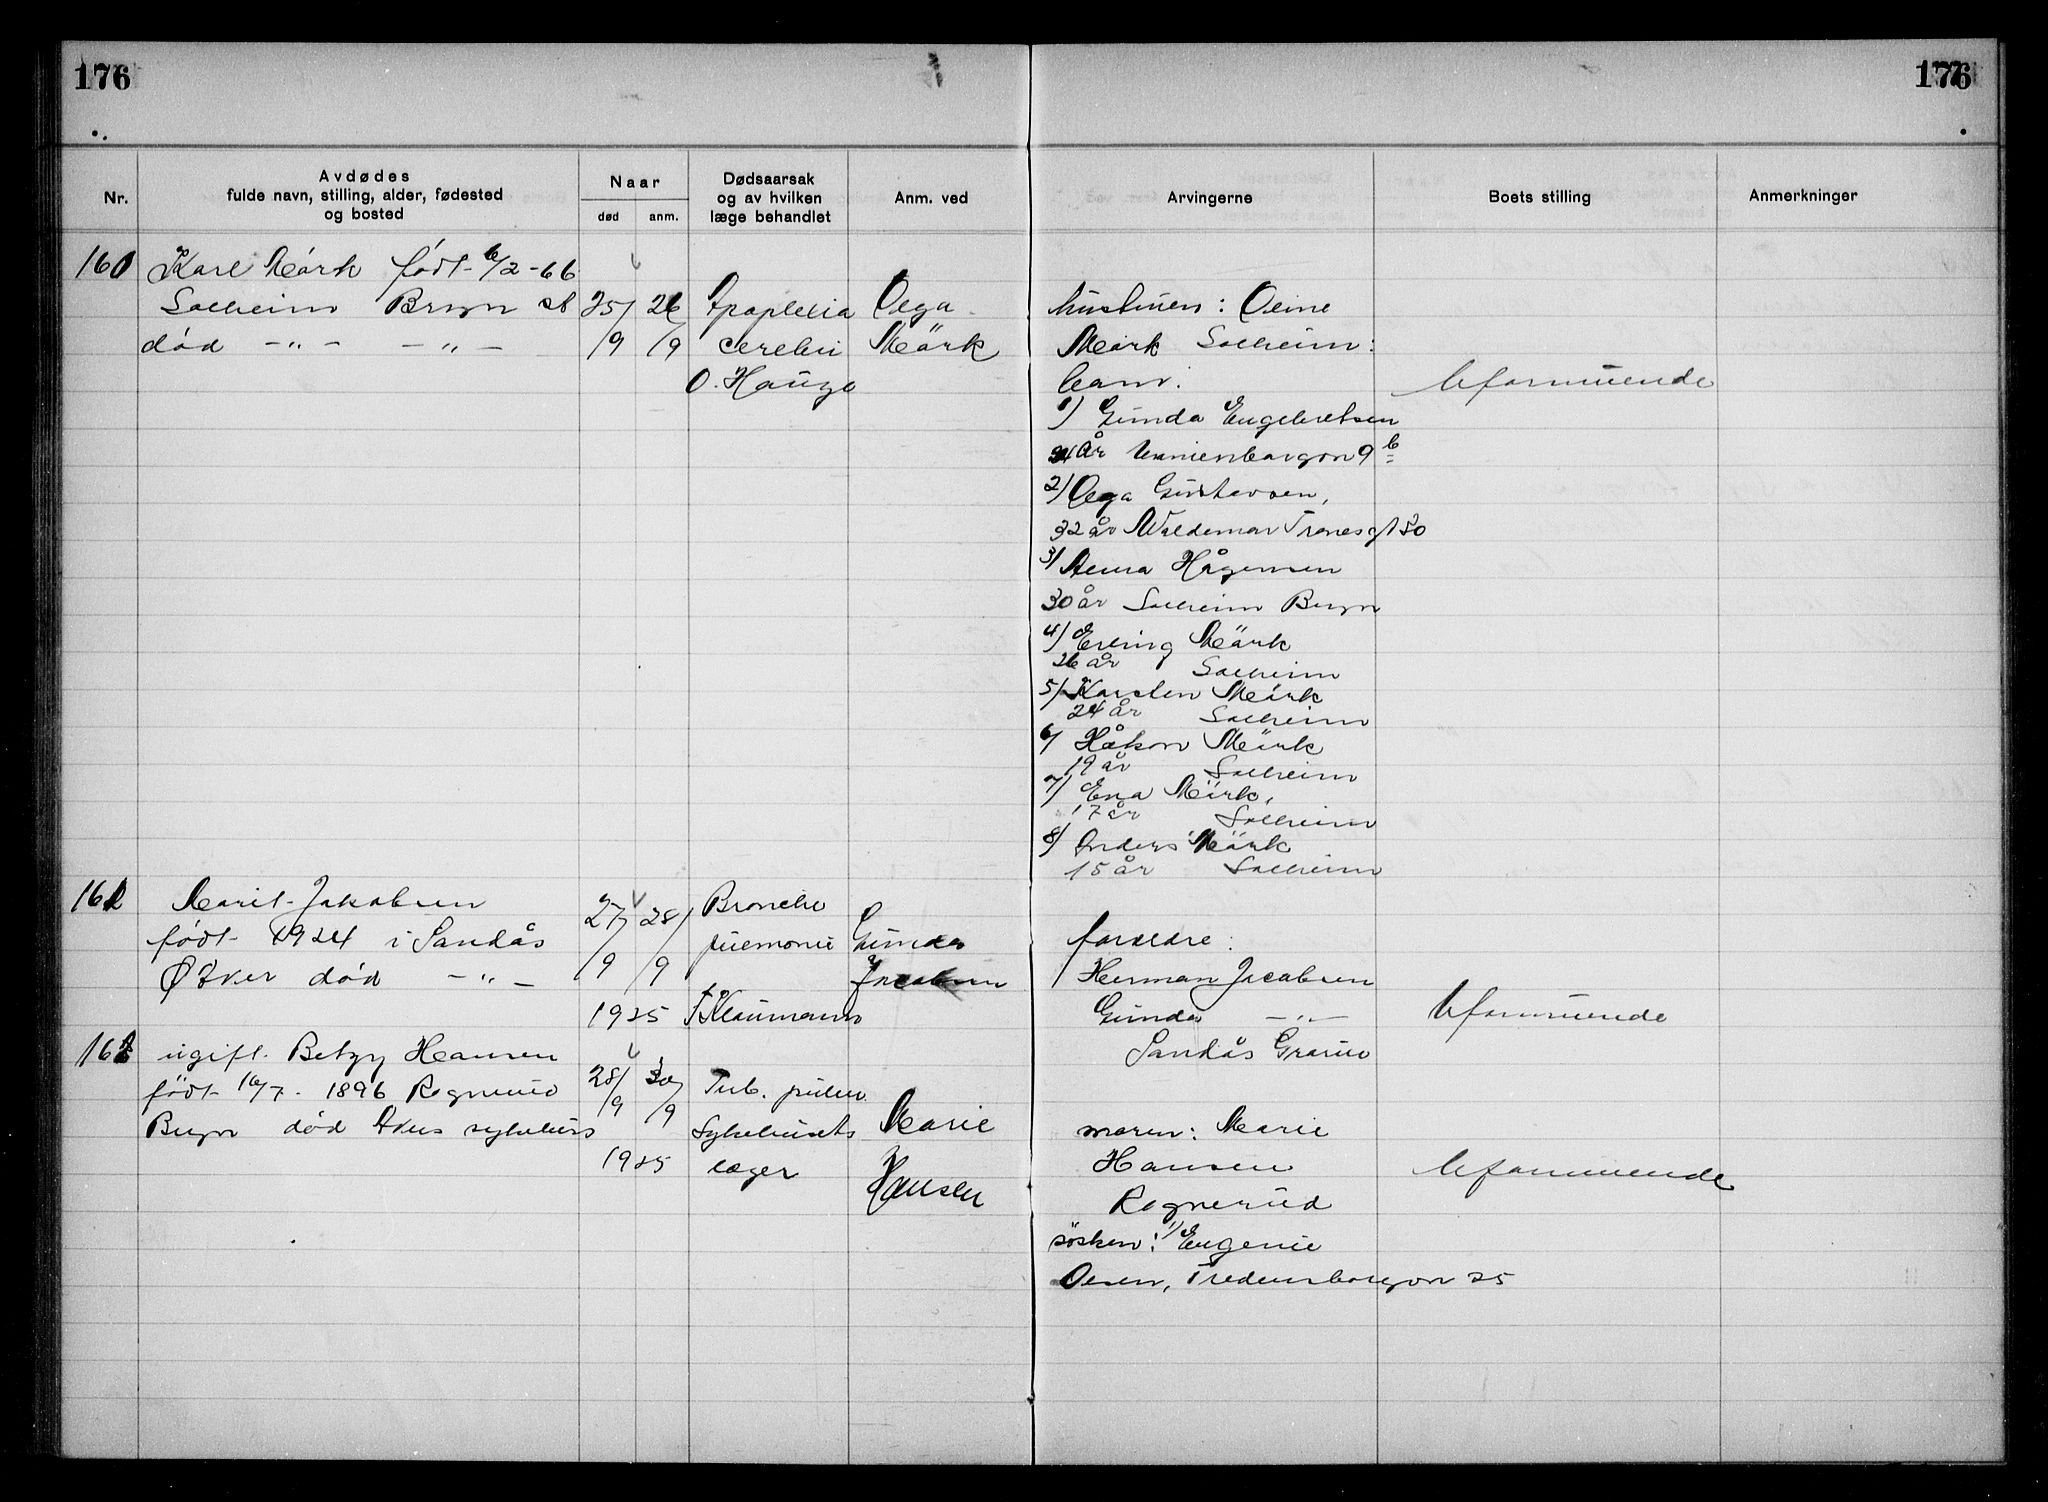 176
176
Nr.
Avdødes
fulde navn, stilling, alder, fødested
og bosted
Naar
død
anm.
Dødsaarsak
og av hvilken
læge behandlet
Anm. ved
Arvingerne
Boets stilling
Anmerkninger
160
Karl Mörk født 6/2-66
Solheim Bryn st
død -"- -"-
25/9
26/9
Apoplexia
cerebri
O. Hauge
Olga
Mörk
hustruen: Oline
Mörk Solheim:
barn:
1) Gunda Engebretsen
34 år Enerhaugen 9 b
2) Olga Gustavsen,
32 år Waldemar Tranesgt 30
3) Anna Hågensen
30 år Solheim Bryn
4) Erling Mörk
26 år Solheim
5) Karsten Mörk
24 år Solheim
6) Håkon Mörk
19 år Solheim
7) Ena Mörk,
17 år Solheim
8) Anders Mörk
15 år Solheim
Uformuende
161
Marit Jakobsen
født 1924 i Sandås
Ø Aker død -"-
27/9
28/9
1925
Bronche
pnemoni
Klaumann
Gunda
Jacobsen
foreldre:
Herman Jacobsen
Gunda -"-
Sandås Grorud
Uformuende
162
ugift. Betzy Hansen
født 16/7. 1896 Rognerud
Bryn død Akers sykehus
28/9
30/9
1925
Tub. pulm.
Sykehusets
læger
Marie
Hansen
moren: Marie
Hansen
Rognerud
Uformuende
søsken: 1) Eugenie
Olsen, Fredensborgvn 25